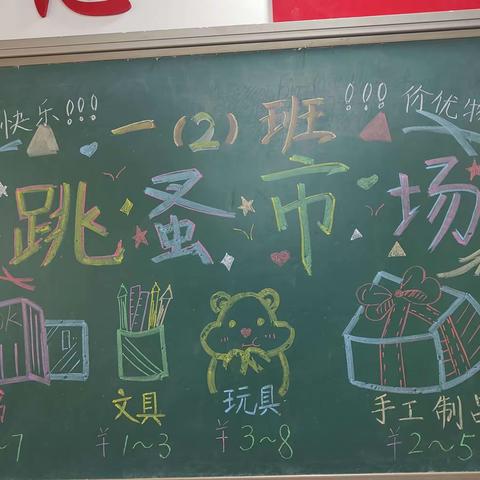 快乐!!! 一(2)班 !!! 价优物
跳蚤市场
文具 玩具 手工制品
~7 ¥1~3 ¥3~8 ¥2~5